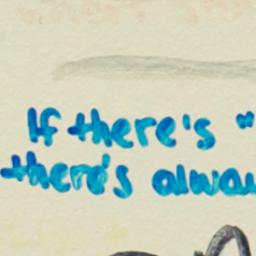 If there's "
there's alwa